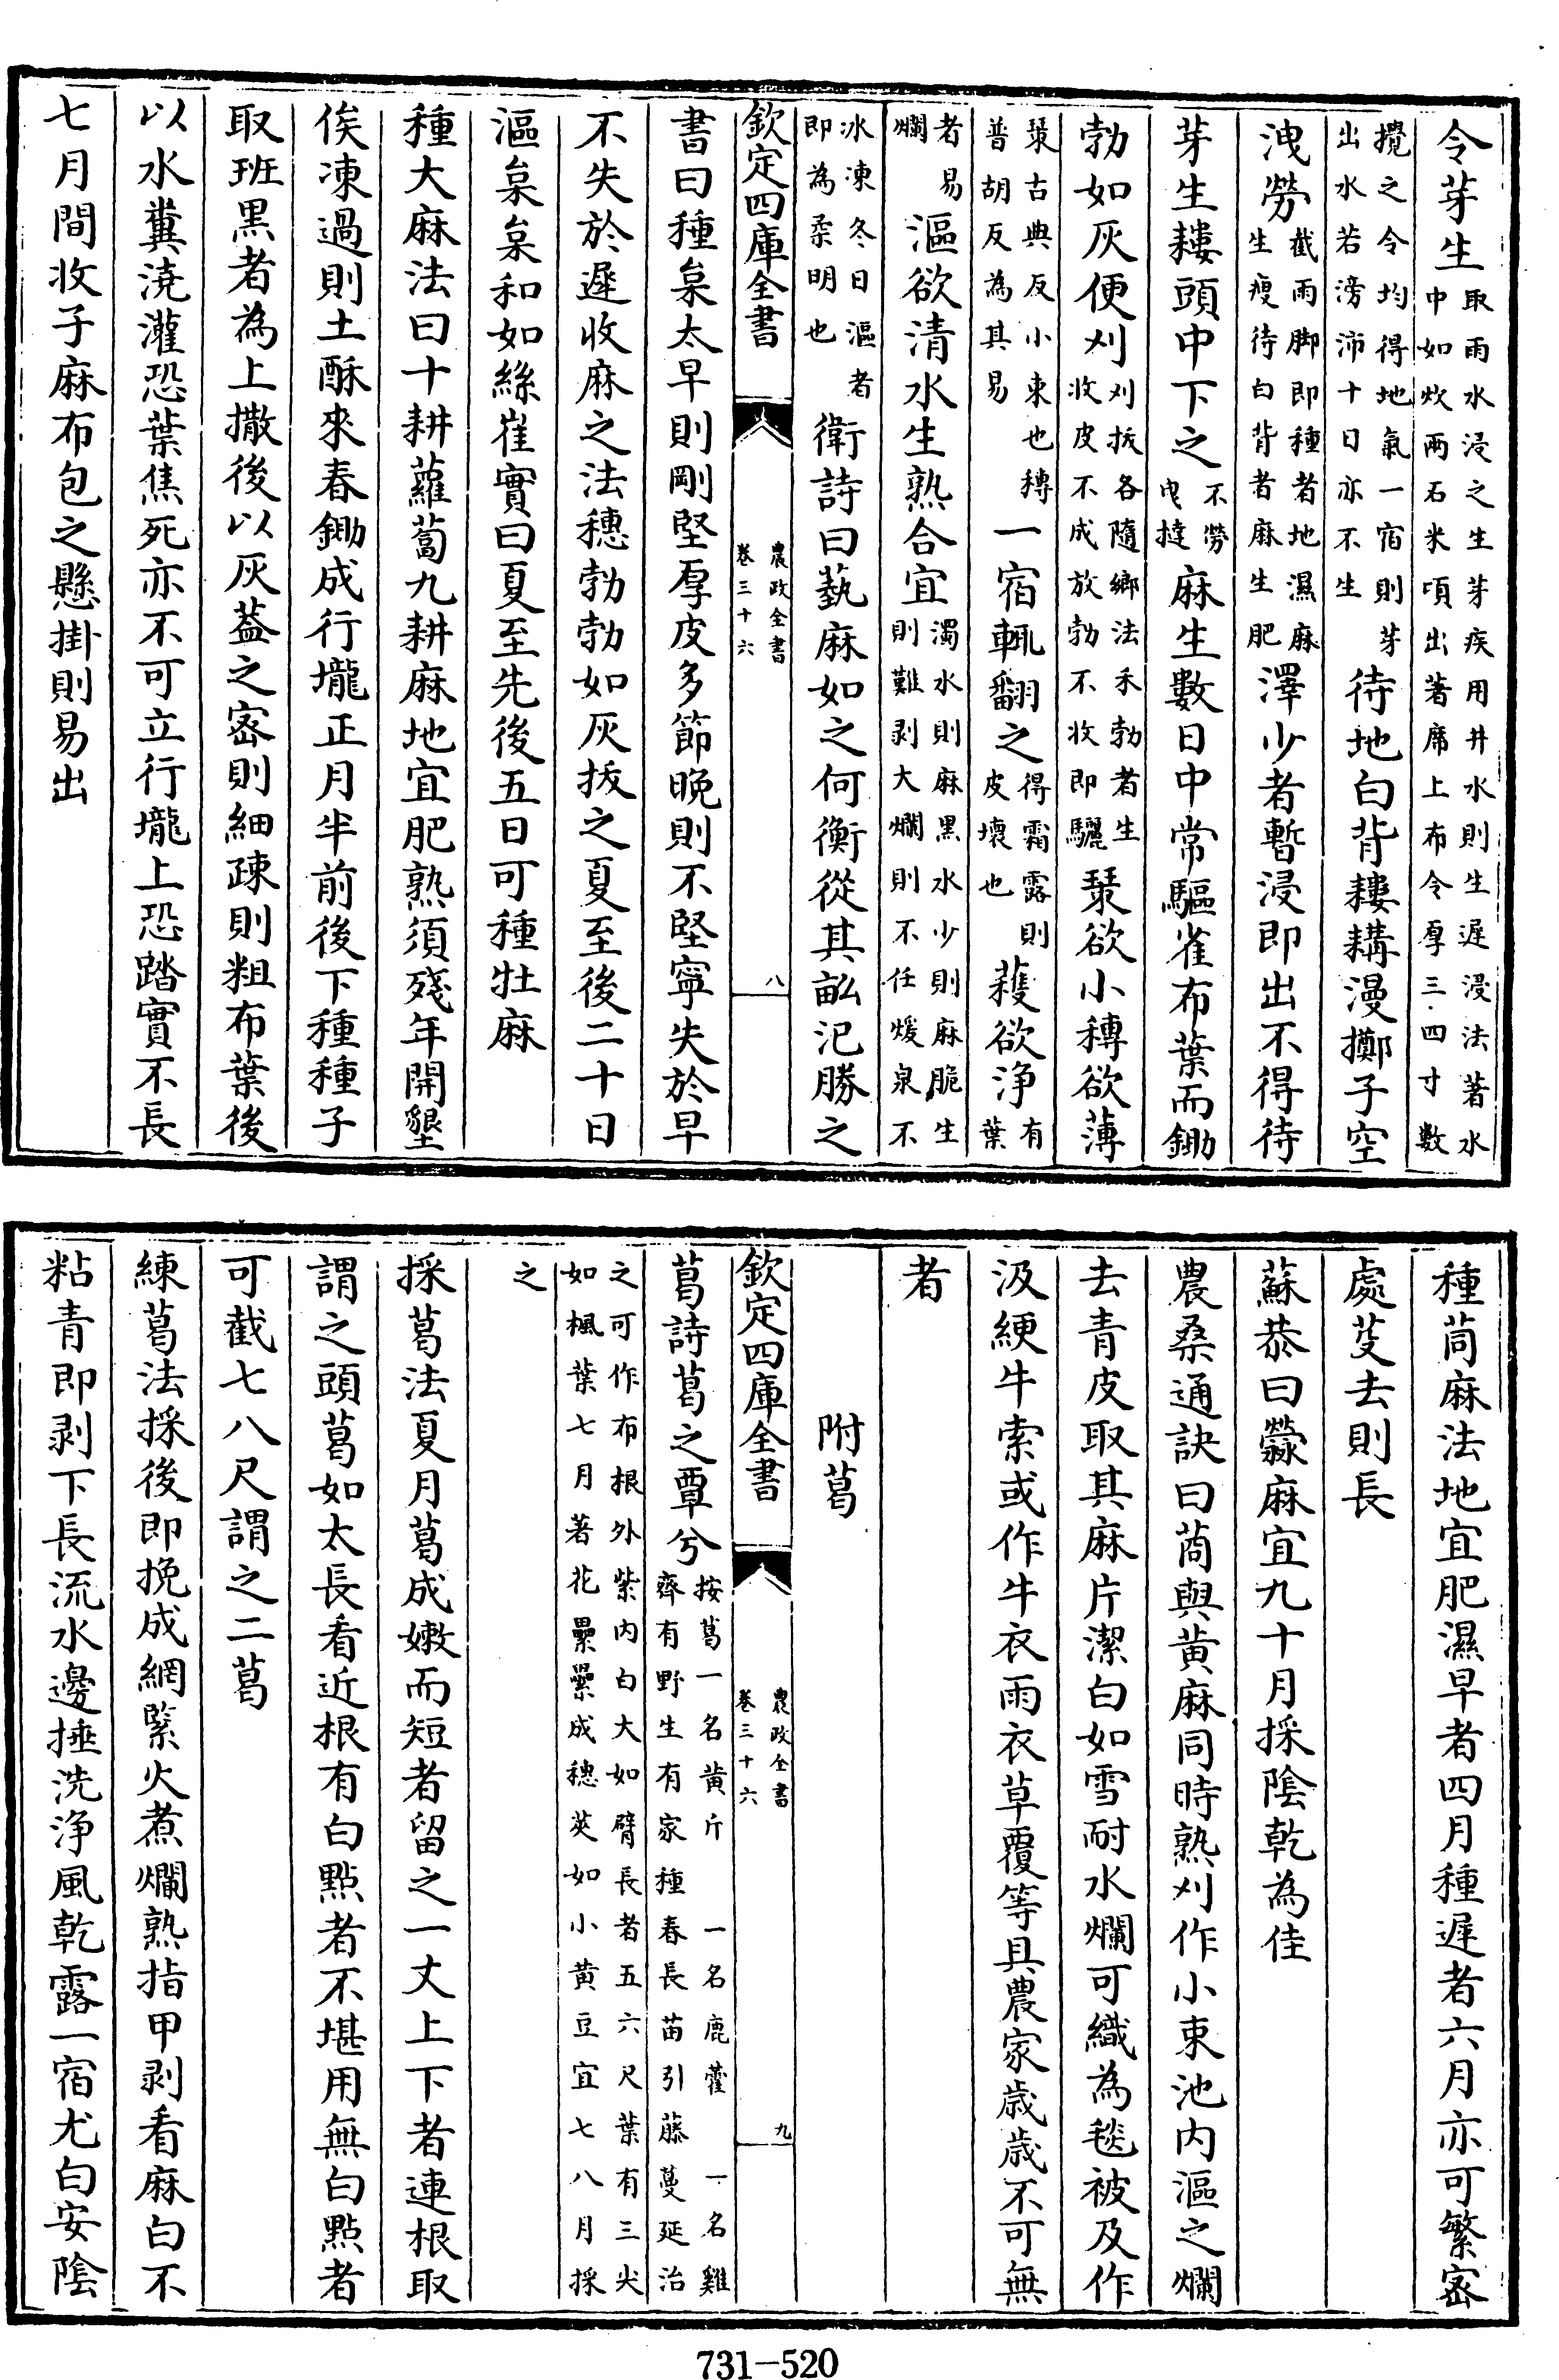 令芽生取雨水浸之生芽疾用井水則生遲浸法著水
中如炊兩石米頃出著席上布令厚三四寸數
攪之令均得地氣一宿則芽
出水若滂沛十日亦不生待地白背耬耩漫擲子空
洩勞截雨脚即種者地濕麻
生瘦待白背者麻生肥澤少者暫浸即出不得待
芽生耬頭中下之不勞
曳撻麻生數日中常驅雀布葉而鋤
勃如灰便刈刈拔各隨鄉法禾勃者生
收皮不成放勃不收即驪欲小䅭欲薄
古典反小束也䅭
普胡反為其易一宿輒翻之得霜露則
皮壞也穫欲浄有
葉
者易
爛漚欲清水生熟合宜濁水則麻黑水少則麻脆生
則難剥大爛則不任煖泉不
冰凍冬日漚者
即為柔明也衛詩曰蓺麻如之何衡從其畝氾勝之
欽定四庫全書 農政全書
卷三十六 八
書曰種枲太早則剛堅厚皮多節晚則不堅寧失於早
不失於遲收麻之法穗勃勃如灰拔之夏至後二十日
漚枲枲和如絲崔實曰夏至先後五日可種牡麻
種大麻法曰十耕蘿蔔九耕麻地宜肥熟須殘年開墾
俟凍過則土酥來春鋤成行壠正月半前後下種種子
取班黑者為上撒後以灰葢之宻則細疎則粗布葉後
以水糞澆灌恐葉焦死亦不可立行壠上恐踏實不長
七月間收子麻布包之懸掛則易出
種苘麻法地宜肥濕早者四月種遲者六月亦可繁宻
處芟去則長
蘇恭曰檾麻宜九十月採陰乾為佳
農桑通訣曰苘與黃麻同時熟刈作小束池内漚之爛
去青皮取其麻片潔白如雪耐水爛可織為毯被及作
汲綆牛索或作牛衣雨衣草覆等具農家歲歲不可無
者
附葛
欽定四庫全書 農政全書
卷三十六 九
葛詩葛之覃兮按葛一名黃斤 一名鹿藿 一名雞
齊有野生有家種春長苗引藤蔓延治
之可作布根外紫内白大如臂長者五六尺葉有三尖
如楓葉七月著花纍纍成穗莢如小黃豆宜七八月採
之
採葛法夏月葛成嫩而短者留之一丈上下者連根取
謂之頭葛如太長看近根有白點者不堪用無白點者
可截七八尺謂之二葛
練葛法採後即挽成網緊火煮爛熟指甲剥看麻白不
粘青即剥下長流水邊捶洗浄風乾露一宿尤白安陰
731—520